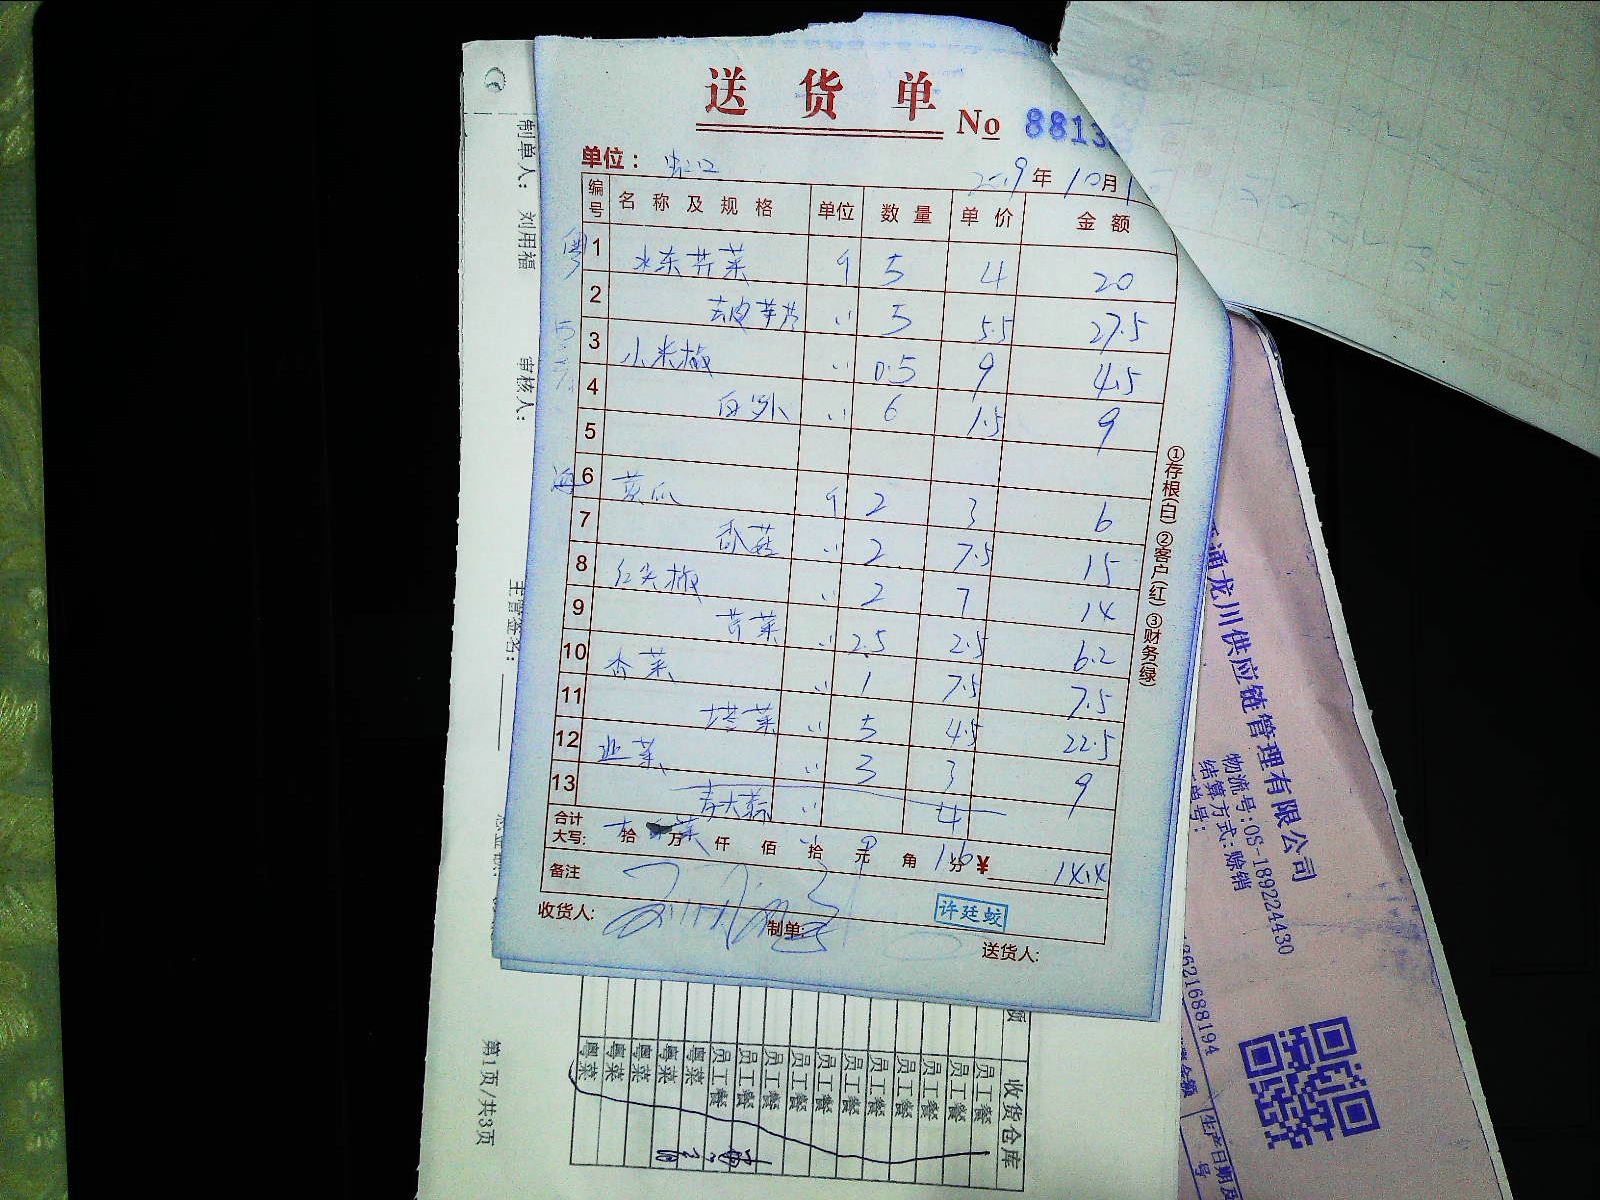 送货单 No 8813
单位： 虹口 2019年10月1
编号 名称及规格 单位 数量 单价 金额
粤 1 水东芥菜 斤 5 4 20
2 去皮芋艿 〃 5 5.5 27.5
3 小米椒 〃 0.5 9 4.5
4 白萝卜 〃 6 1.5 9
5
海 6 黄瓜 斤 2 3 6
7 香菇 〃 2 7.5 15
8 红尖椒 〃 2 7 14
9 芹菜 〃 2.5 2.5 6.2
10 香菜 〃 1 7.5 7.5
11 塔菜 〃 5 4.5 22.5
12 韭菜 〃 3 3 9
13 青大蒜 〃 4
合计大写： 拾 万 仟 佰 拾 元 角 分 ¥
9 1.6 14.4
备注
许廷蛟
收货人： 制单： 送货人：
①存根(白) ②客户(红) ③财务(绿)
制单人： 刘用福 审核人： 主管签名：
第1页/共3页
收货仓库
员工餐
员工餐
员工餐
员工餐
员工餐
员工餐
员工餐
员工餐
员工餐
员工餐
粤菜
粤菜
粤菜
粤菜
粤菜
通龙川供应链管理有限公司
物流号：OS-189224430
结算方式：赊销
单号：
3621688194
生产日期及
号